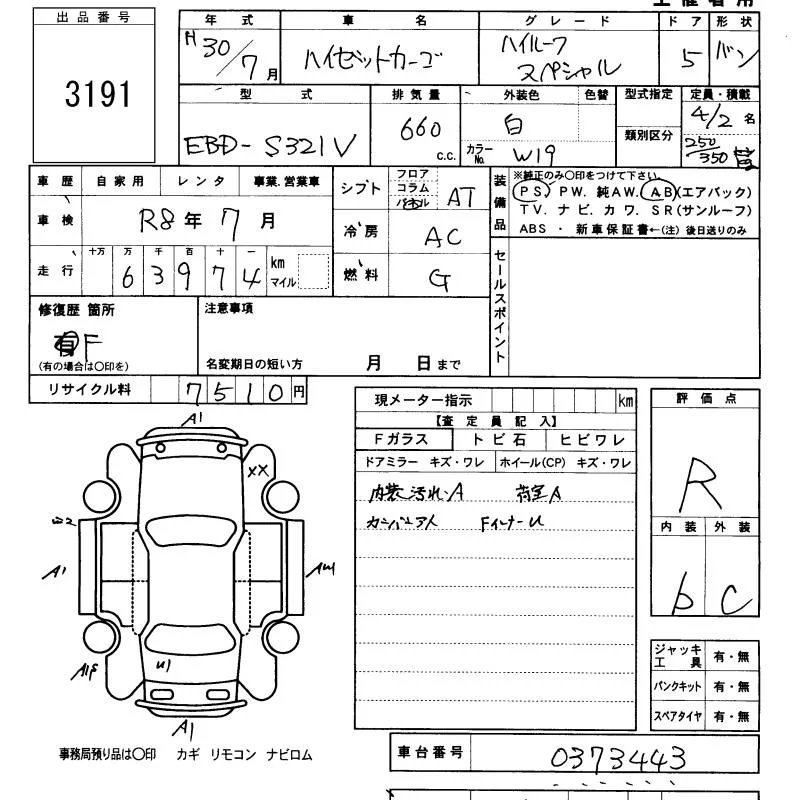 出品番号
3191
年式 車名 グレード ドア 形状
H30/7月 ハイゼットカーゴ ハイルーフ スペシャル 5 バン
型式 排気量 外装色 色替 型式指定 定員・積載
EBD-S321V 660 c.c. 白 カラーNo. W19 類別区分 4/2名 250/350
車歴 自家用 レンタ 事業.営業車
車検 R8年7月
走行 十万 万 千 百 十 一
63974 km マイル
シフト フロア コラム AT
冷房 AC
燃料 G
装備品
※純正のみ〇印をつけて下さい
PS PW. 純AW. AB(エアバック)
TV. ナビ. カワ. SR(サンルーフ)
ABS ・ 新車保証書←(注) 後日送りのみ
セールスポイント
修復歴 箇所
有F
(有の場合は〇印を)
注意事項
名変期日の短い方 月 日まで
リサイクル料 7510円
現メーター指示 km
【査定員記入】
Fガラス トビ石 ヒビワレ
ドアミラー キズ・ワレ ホイール(CP) キズ・ワレ
内装汚れ.A 荷室A
FインナーU
評価点
R
内装 外装
b C
ジャッキ工具 有・無
パンクキット 有・無
スペアタイヤ 有・無
A1
XX
A1
U1
A1
事務局預り品は〇印 カギ リモコン ナビロム
車台番号 0373443